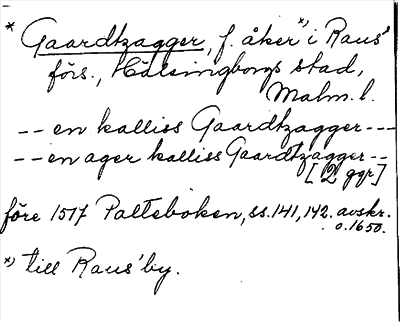 * Gaardtzagger, f. åker *) i Raus'
förs., Hälsingborgs stad,
Malm. l.
-- en kalliss Gaardtzagger ---
-- en ager kalliss Gaardtzagger --
[2 ggr]
före 1517 Palteboken, ss. 141, 142. avskr.
o. 1650.
*) till Raus' by.